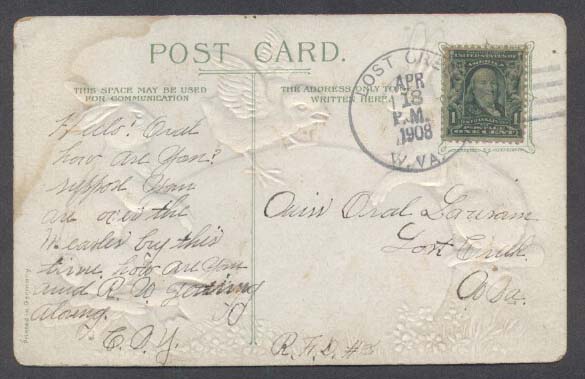 POST CARD.
THIS SPACE MAY BE USED
FOR COMMUNICATION
THE ADDRESS ONLY TO
WRITTEN HERE
OST CRE
APR
18
P.M.
1908
W.VA.
1
ONE CENT
1
Hello! Oral
how are you?
suppose you
are over the
Measles by this
time. how are you
and R. W. getting
along.
C. D. Y.
Miss Oral
Lost Creek
W Va.
R. F. D. #
Printed in Germany